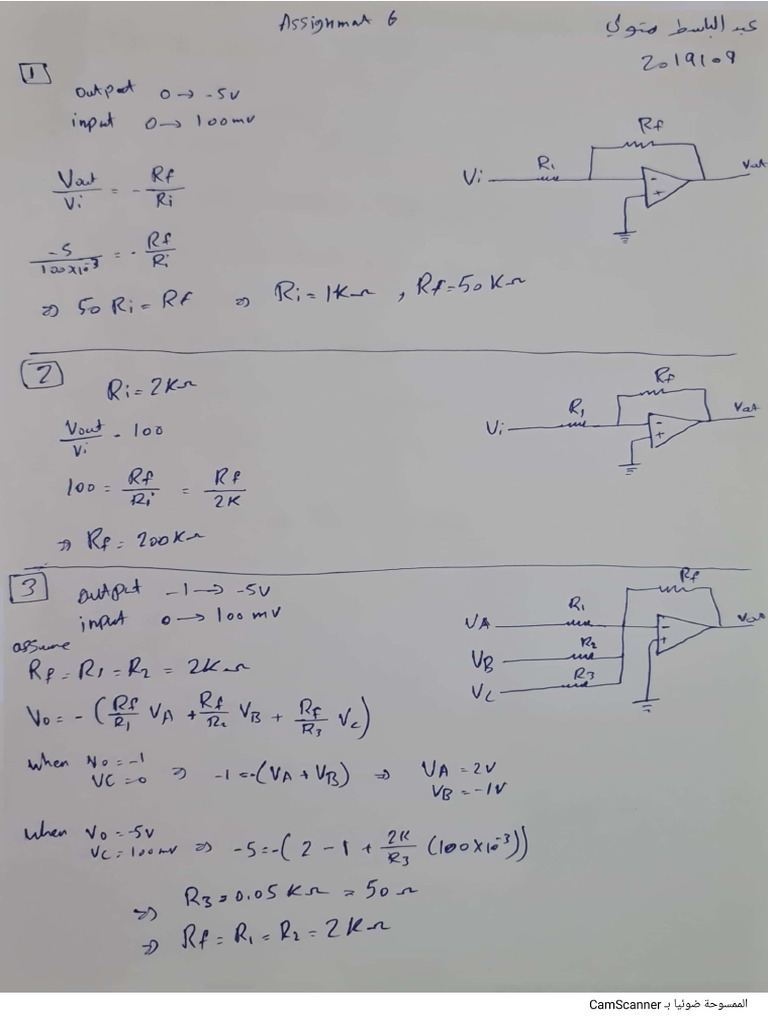 Assignmat 6
عبد الباسط متولي
2019109
1
output 0 → -5v
input 0 → 100mv
Vout/Vi = - Rf/Ri
-5/100x10^-3 = - Rf/Ri
⇒ 50 Ri = Rf ⇒ Ri = 1KΩ , Rf = 50KΩ
Vi R1 Rf - + Vout
2
Ri = 2KΩ
Vout/Vi = 100
100 = Rf/Ri = Rf/2K
⇒ Rf = 200KΩ
Vi R1 Rf - + Vout
3
output -1 → -5v
input 0 → 100 mv
assume
Rf = R1 = R2 = 2KΩ
Vo = - (Rf/R1 VA + Rf/R2 VB + Rf/R3 Vc)
when Vo = -1
VC = 0 ⇒ -1 = -(VA + VB) ⇒ VA = 2V
VB = -1V
when Vo = -5v
Vc = 100mv ⇒ -5 = -( 2 - 1 + 2K/R3 (100x10^-3))
⇒ R3 = 0.05 KΩ = 50Ω
⇒ Rf = R1 = R2 = 2KΩ
VA R1 Rf - + Vout
VB R2
VC R3
الممسوحة ضوئيا بـ CamScanner